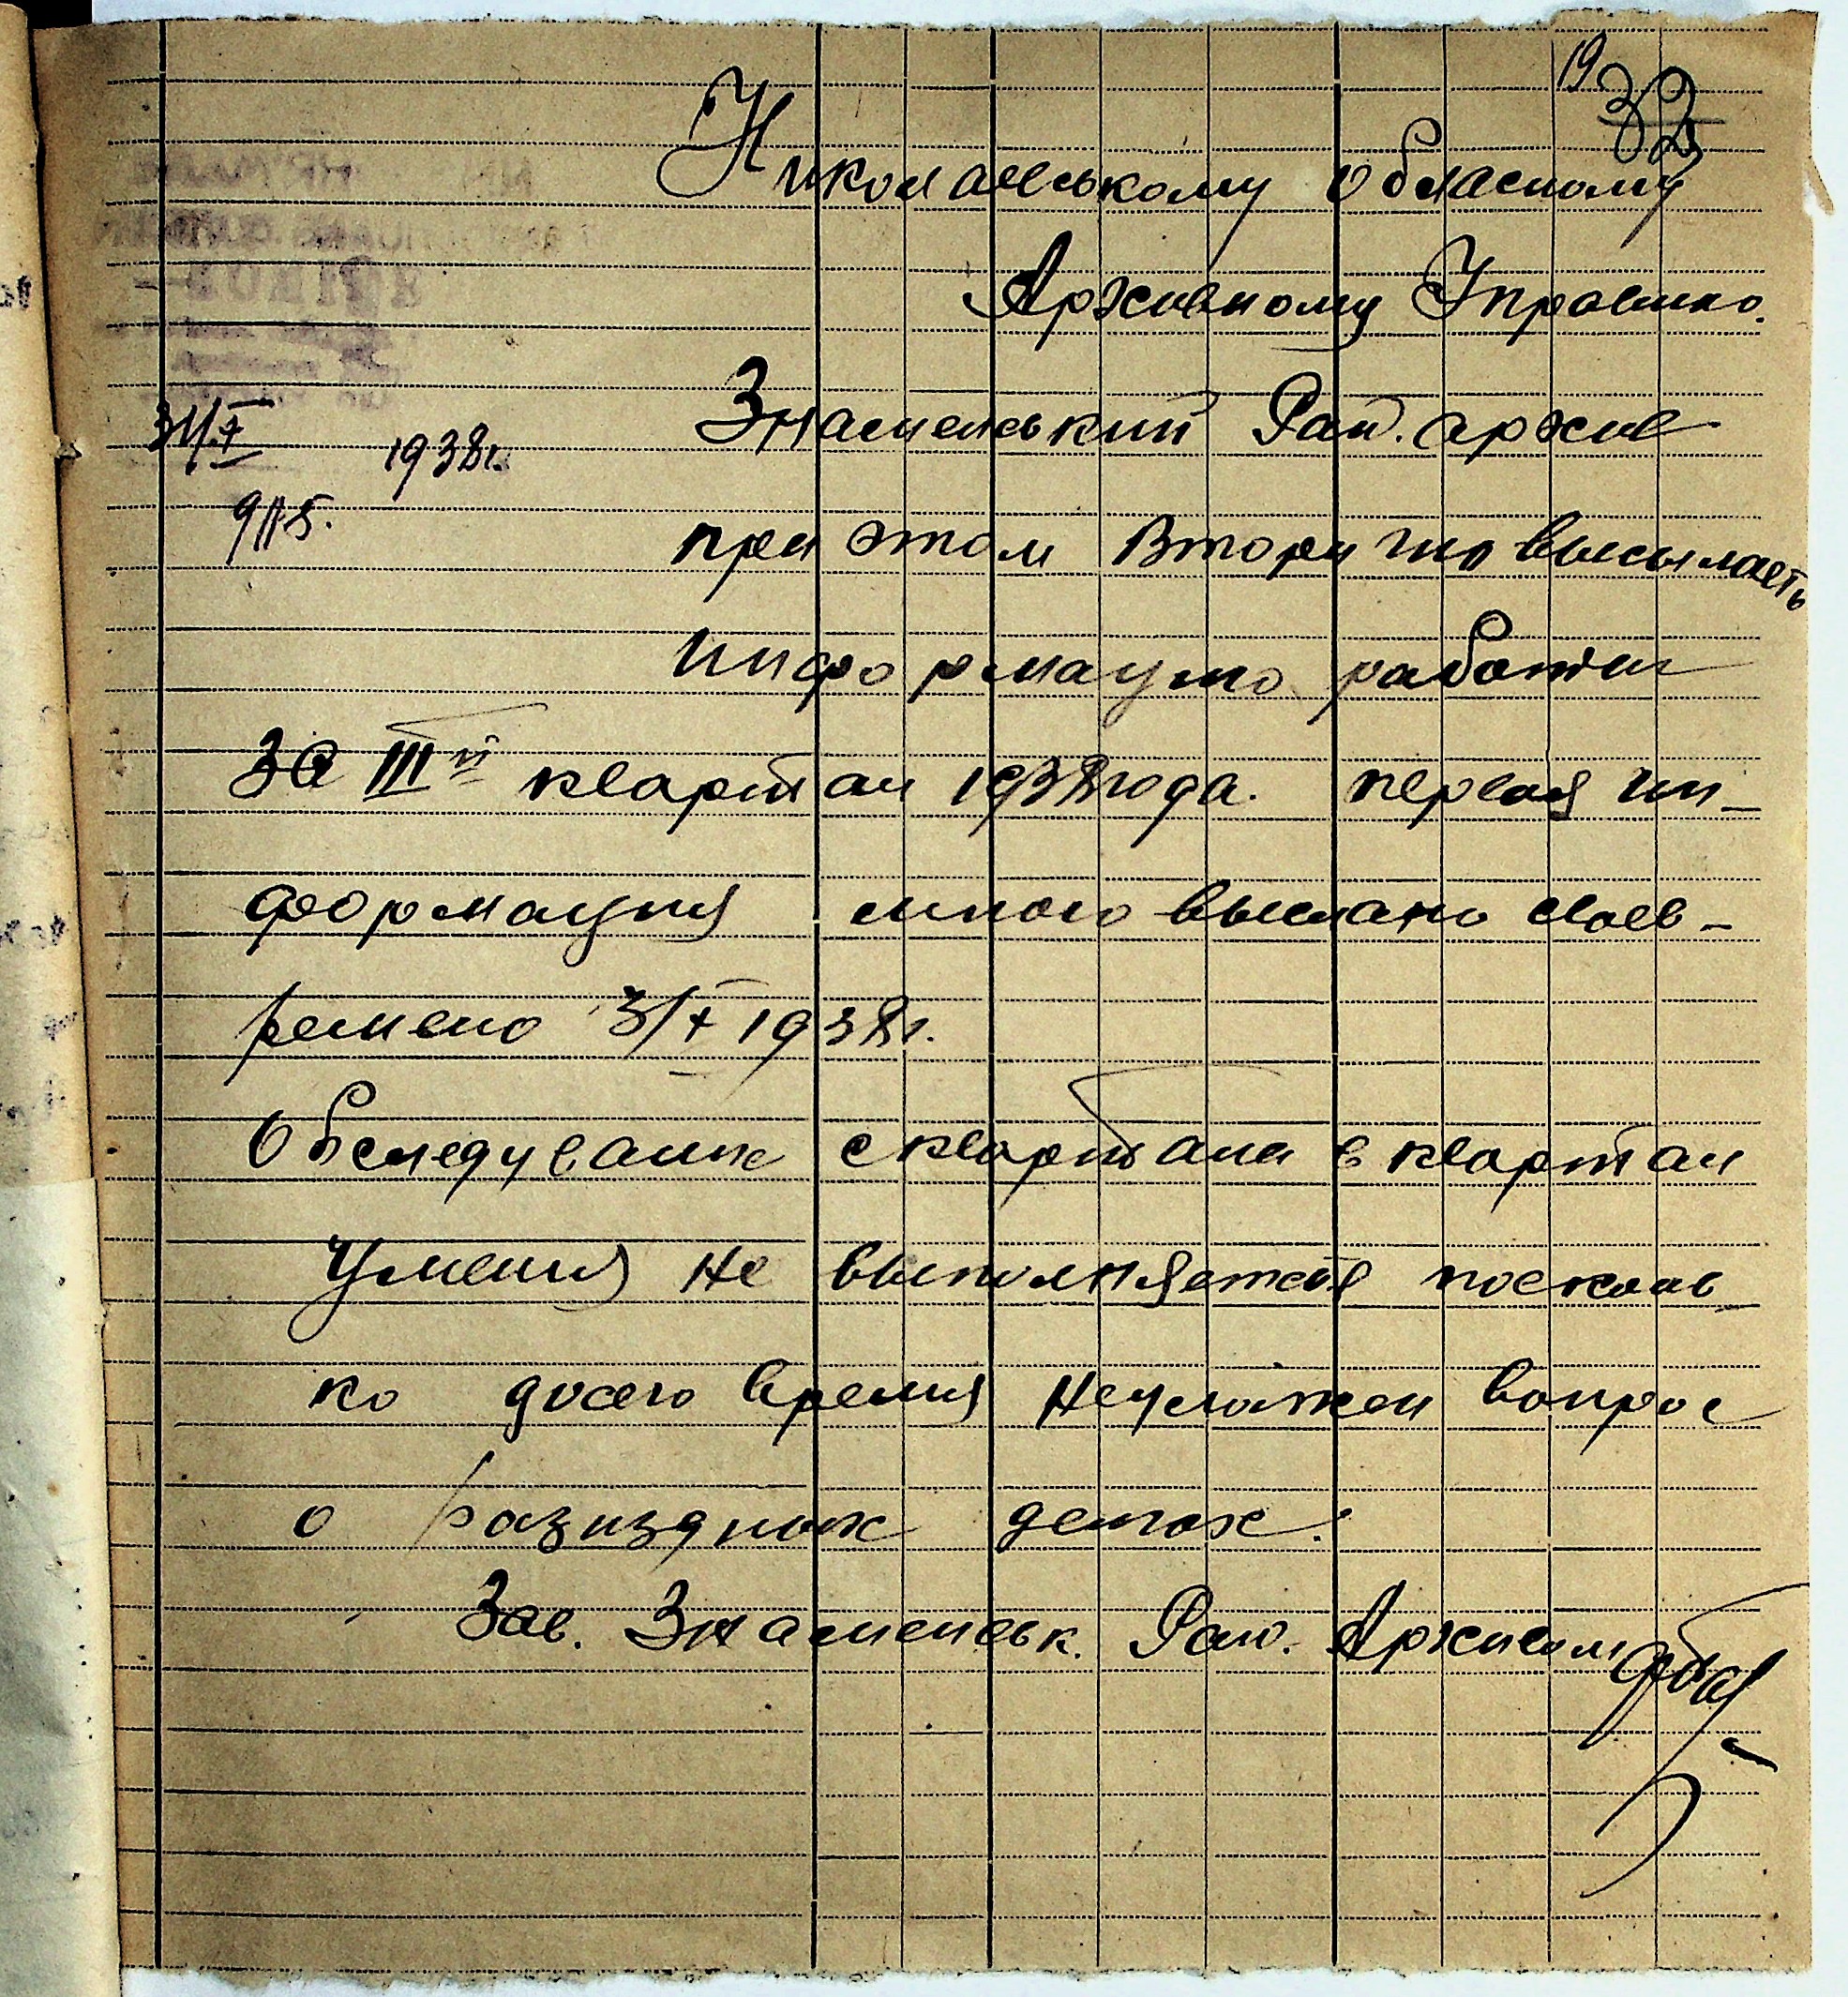 19
32
Николаевському Обласному
Архивному Управлю.
Знаменський Рай. архив
31/X 1938г.
№5.
при этом вторично высылаеть
информацию работы
за III й квартал 1938 года. первая ин-
формация мною выслано своев-
ремено 3/X 1938г.
Обследувание с квартала в квартал
уменя не выполняется посколь
ко досего время неулажен вопрос
о разизднык деньгах.
Зав. Знаменськ. Рай. Архивом